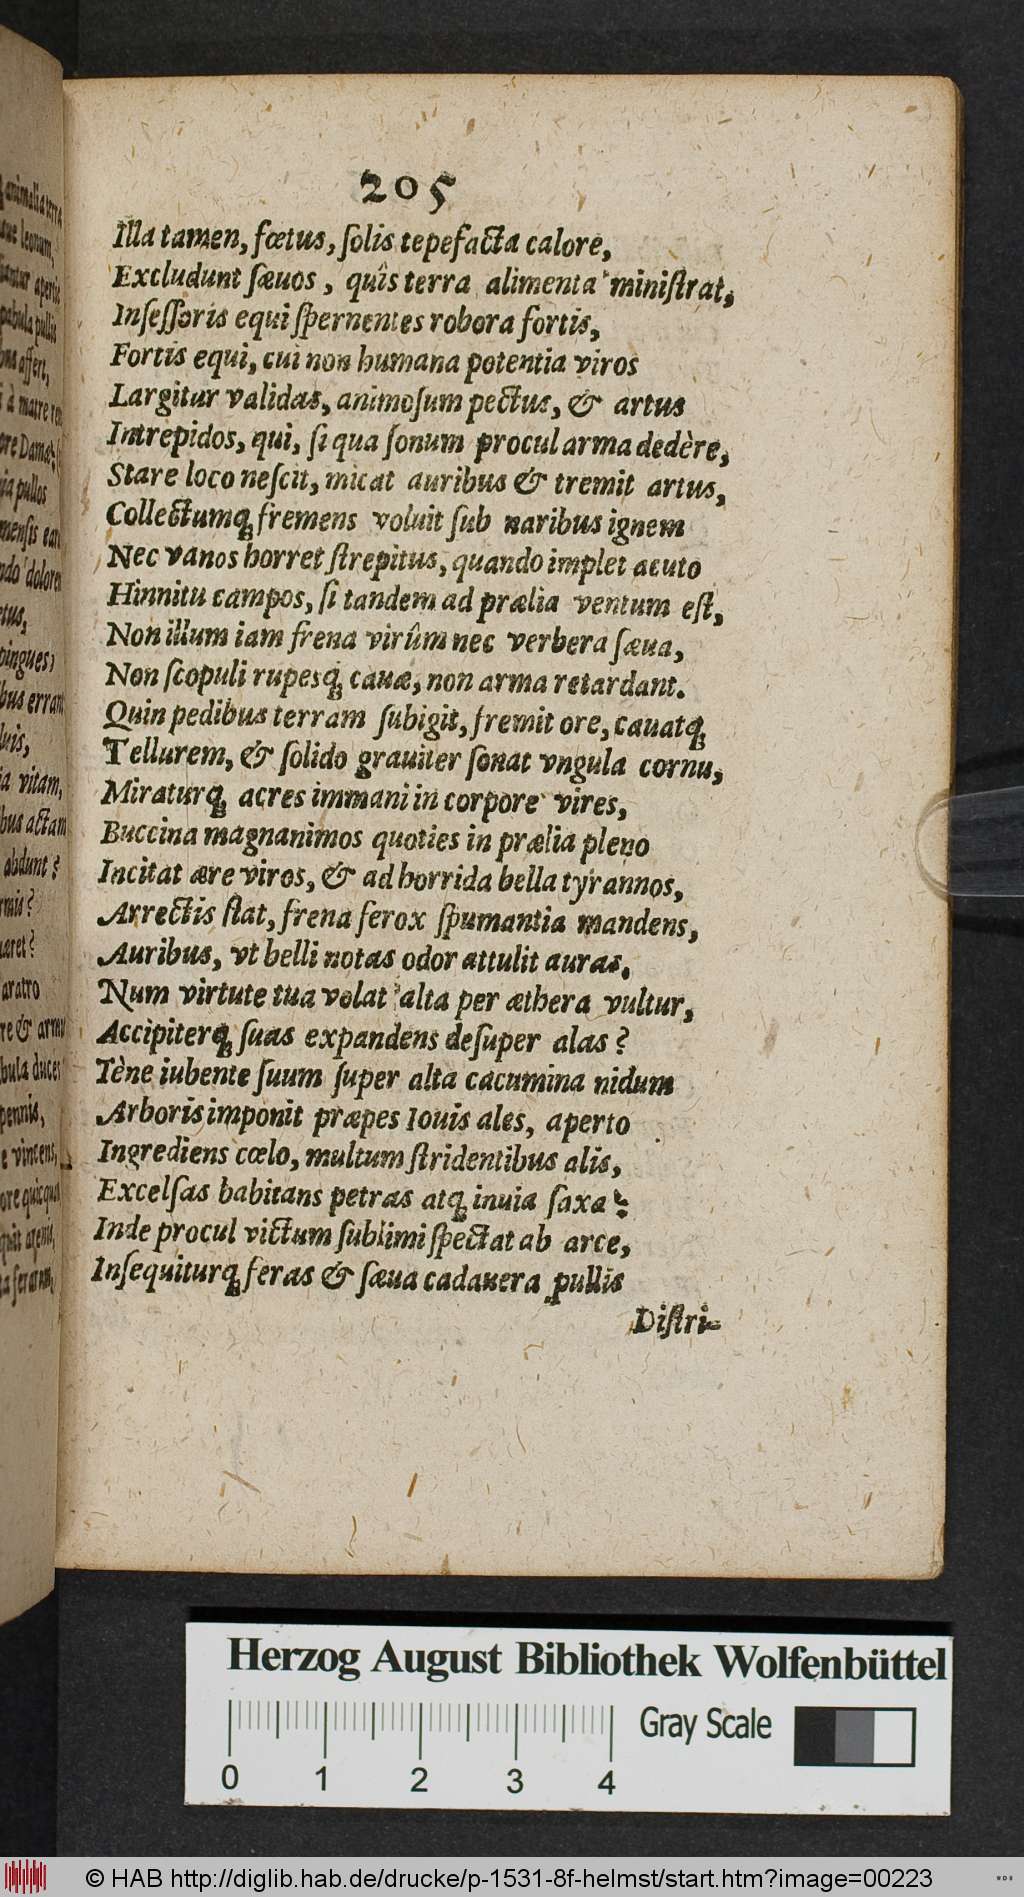 205
Illa tamen, fœtus, ſolis tepefacta calore,
Excludunt ſæuos, quîs terra alimenta miniſtrat,
Inſeſſoris equi ſpernentes robora fortis,
Fortis equi, cui non humana potentia viros
Largitur validas, animoſum pectus, & artus
Intrepidos, qui, ſi qua ſonum procul arma dedère,
Stare loco neſcit, micat auribus & tremit artus,
Collectumq́ fremens voluit ſub naribus ignem
Nec vanos horret ſtrepitus, quando implet acuto
Hinnitu campos, ſi tandem ad prælia ventum eſt,
Non illum iam frena virûm nec verbera ſæua,
Non ſcopuli rupesq́ cauæ, non arma retardant.
Quin pedibus terram ſubigit, fremit ore, cauatq́
Tellurem, & ſolido grauiter ſonat vngula cornu,
Miraturq́ acres immani in corpore vires,
Buccina magnanimos quoties in prælia pleno
Incitat ære viros, & ad horrida bella tyrannos,
Arrectis ſtat, frena ferox ſpumantia mandens,
Auribus, vt belli notas odor attulit auras.
Num virtute tua volat alta per æthera vultur,
Accipiterq́ ſuas expandens deſuper alas?
Tène iubente ſuum ſuper alta cacumina nidum
Arboris imponit præpes Iouis ales, aperto
Ingrediens cœlo, multum ſtridentibus alis,
Excelſas habitans petras atq́ inuia ſaxa?
Inde procul victum ſublimi ſpectat ab arce,
Inſequiturq́ feras & ſæua cadauera pullis
Diſtri-
animalia terra
leonum,
pabula pullis
affert,
à matre
pullos
dolore
pingues?
vitam,
actam
abdunt?
aratro
& arma
duces
pennis,
vincens,
Herzog August Bibliothek Wolfenbüttel
Gray Scale
0 1 2 3 4
© HAB http://diglib.hab.de/drucke/p-1531-8f-helmst/start.htm?image=00223